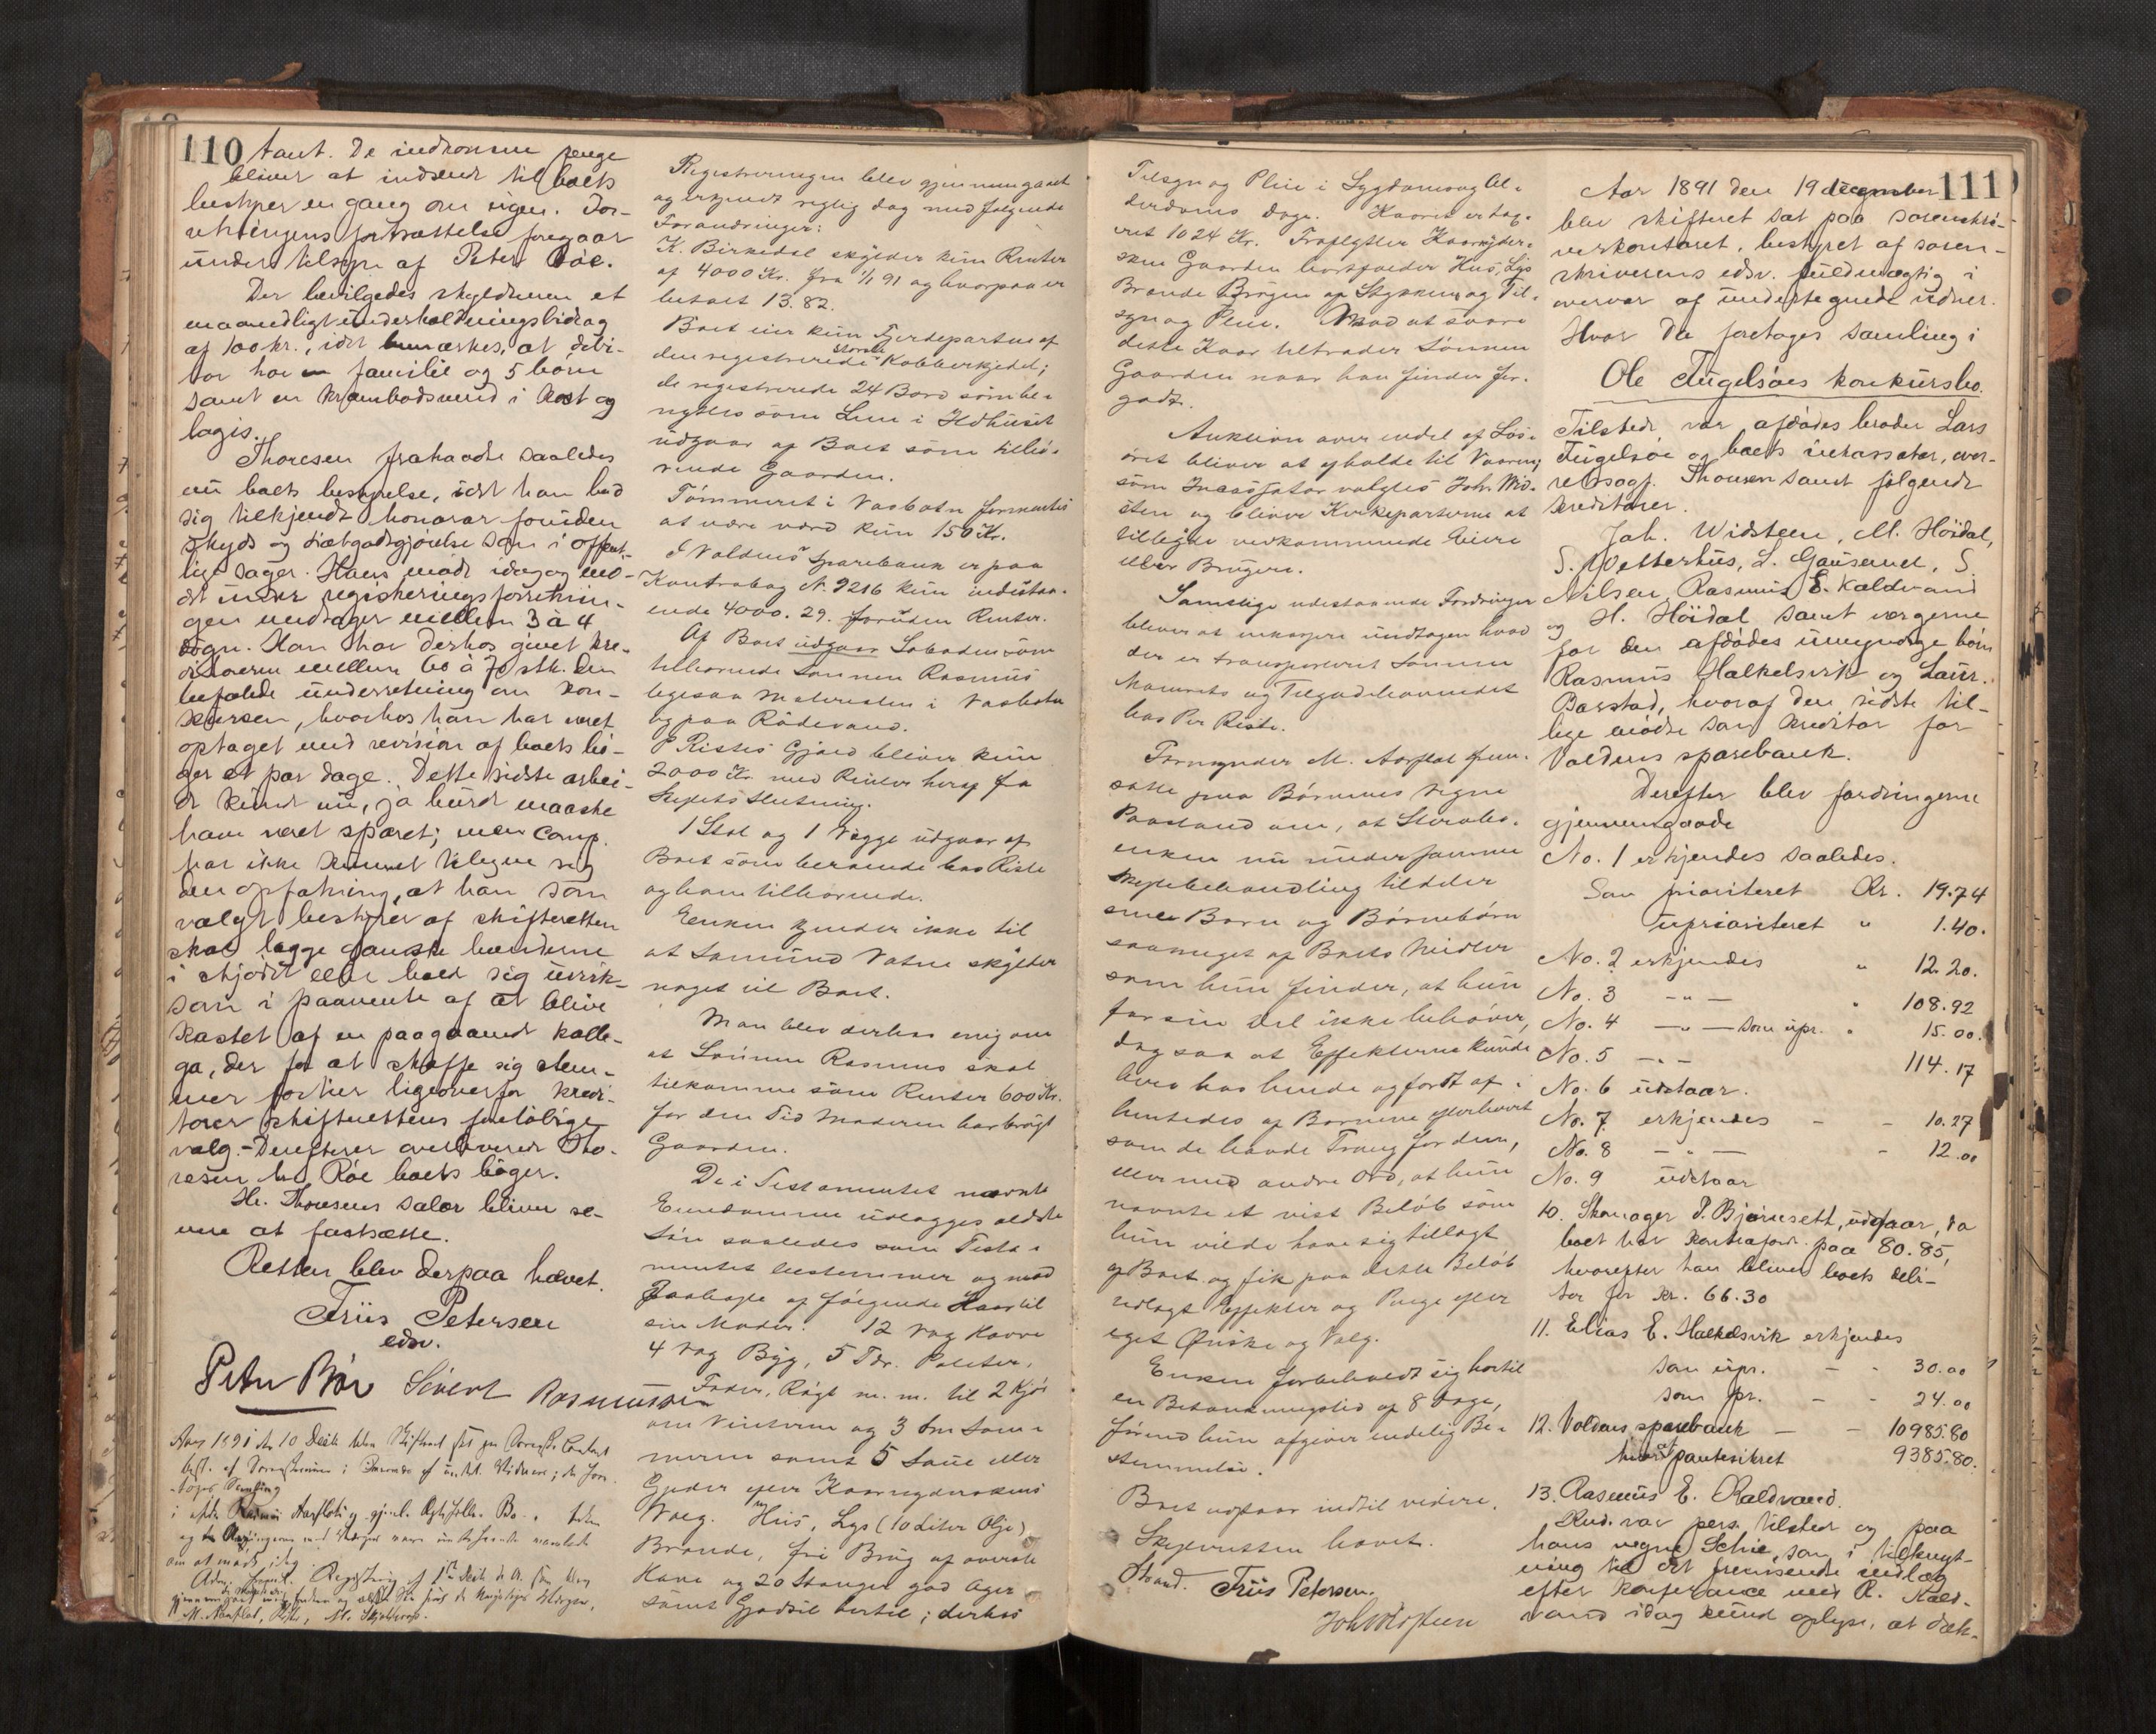 110 tant. De indkomne penge
bliver at indsende til boets
bestyrer en gang om ugen. For-
retningens fortsættelse foregaar
under tilsyn af Peter Röe.
Der bevilgedes skyldneren et
maanedligt underholdningsbidrag
af 100 kr., idet bemærkes, at debi-
tor har familie og 5 børn
samt en krambodsvend i kost og
logis.
Thoresen frahavdt saaledes
nu boets bestyrelse, idet han bad
sig tilkjendt honorar foruden
skyds og diætgodtgjörelse som i offent-
lige sager. Hans møde idag og mö-
det under registreringsforretnin-
gen medtager mellem 3 à 4
døgn. Han har derhos givet kre-
ditorerne mellem 60 à 70 stk. den
befalede underretning om kon-
kursen, hvorhos han har været
optaget med revision af boets bö-
ger et par dage. Dette sidste arbei-
de kunde nu, ja burde maaske
have været sparet; men comp.
har ikke kunnet tilegne sig
den opfatning, at han som
valgt bestyrer af skifteretten
skal lægge ganske hænderne
i skjödet eller holde sig uvirk-
som i paavente af at blive
kastet af en paagaaende kolle-
ga, der for at skaffe sig stem-
mer fortier ligeoverfor kredi-
torer skifterettens foreløbige
valg. - Derefter overleverede Tho-
resen hr. Röe boets böger.
Hr. Thoresens salær bliver se-
nere at fastsætte.
Retten blev derpaa hævet.
Friis Petersen
edsv.
Peter Röe Sivert Rasmussen
Aar 1891 den 10 Decbr blev Skifteret sat paa Sorenskr. Contoret
best. af Sorenskriveren i Overvær af undert. Vidner; da fore-
toges Samling
i afdøde Rasmus Aarflots og gjenl. Bo.
og Arvingerne med Værger vare
om at møde idag.
Registrering af 1ste Decbr d. A.
M. Aarflot, Riste, M.
Registreringen blev gjennemgaaet
og erkjendt rigtig dog med følgende
Forandringer:
K. Birkedal skylder kun Renter
af 4000 Kr. fra 1/1 91 og hvorpaa er
betalt 13.82.
Boet eier kun Fjerdeparten af
den registrerede største Kobberkjedel;
de registrerede 24 Bord som be-
nyttes som Lem i Ildhuset
udgaar af Boet som tilhö-
rende Gaarden.
Tømmeret i Vasbotn formentes
at være værd kun 150 Kr.
I Voldens Sparebank er paa
Kontrabog N. 9216 kun indestaa-
ende 4000.29. foruden Renter.
Af Boet udgaar Saboden som
tilhørende Sønnen Rasmus
ligesaa Materialen i Vasbotn
og paa Rödevand.
P. Ristes Gjæld bliver kun
2000 Kr. med Renter heraf fra
Skiftets Slutning.
1 Stol og 1 Vogge udgaar af
Boet som beroende hos Riste
og ham tilhørende.
Enken kjender ikke til
at Samund Vatne skylder
noget til Boet.
Man blev derhos enig om
at Sønnen Rasmus skal
tilkomme som Renter 600 Kr.
for den Tid Moderen har brugt
Gaarden.
De i Testamentet nævnte
Eiendomme udlægges ældste
Søn saaledes som Testa-
mentet bestemmer og mod
Paalæg af følgende Kaar til
sin Moder: 12 Vog Havre
4 Vog Byg, 5 Tdr. Poteter,
Foder, Rögt m. m. til 2 Kjör
om Vinteren og 3 om Som-
meren samt 5 Saue eller
Gjeder efter Kaarnyderskens
Valg. Hus, Lys (10 Liter Olje)
Brænde, fri Brug af øverste
Have og 20 Stænger god Ager
samt Gjødsel dertil; derhos
Tilsyn og Pleie i Sygdoms og Al-
derdoms Dage. Kaaret er tax-
eret 1024 Kr. Fraflytter Kaarnyder-
sken Gaarden bortfalder Hus, Lys
Brænde Brugen af Stykkerne og Til-
syn og Pleie. Mod at svare
dette Kaar tiltræder Sønnen
Gaarden naar han finder for-
godt.
Auktion over endel af Løs-
øret bliver at afholde til Vaaren;
som Incassator valgtes Joh. Wid-
sten og bliver Kirkeparterne at
tilbyde vedkommende Eiere
eller Brugere.
Samtlige udestaaende Fordringer
bliver at inkassere undtagen hvad
der er transporteret Sønnen
Rasmus og Tilgodehavendet
hos Per Riste.
Formynder M. Aarflot frem-
satte paa Børnenes Vegne
Paastand om, at Stervbo-
enken nu under samme
Skiftebehandling tildeler
sine Børn og Børnebörn
saameget af Boets Midler
som hun finder, at hun
for sin Del ikke behøver,
dog saa at Effekterne kunde
bero hos hende og fordt af-
hentedes af Børnene efterhvert
som de havde Trang for dem,
eller med andre Ord, at hun
nævnte et vist Beløb som
hun vilde have sig tillagt
af Boet og fik paa dette Beløb
udlagt Effekter og Penge efter
eget Ønske og Valg.
Enken forbeholdt sig hertil
en Betænkningstid af 8 Dage,
førend hun afgiver endelig Be-
stemmelse.
Boet udstaar indtil videre.
Skifteretten hævet.
Strand. Friis Petersen.
Joh Widsteen
Aar 1891 den 19 december 111
blev skifteret sat paa sorenskri-
verkontoret, bestyret af soren-
skriverens edsv. fuldmægtig i
overvær af undertegnede vidner.
Hvor da foretoges samling i
Ole Fugelsöes konkursbo.
Tilstede var afdødes broder Lars
Fugelsöe og boets inkassator, over-
retssagf. Thousen samt følgende
kreditorer.
Joh. Widsteen, M. Höidal,
S. Wetterhus, L. Gausemel, S.
Nilsen, Rasmus E. Kaldvand
og H. Höidal samt værgerne
for den afdødes umyndige børn
Rasmus Halkelsvik og Laur.
Barstad, hvoraf den sidste til-
lige mödte som kreditor for
Voldens sparebank.
Derefter blev fordringerne
gjennemgaaede
No. 1 erkjendes saaledes.
Som prioriteret Kr. 19.74
uprioriteret " 1.40.
No. 2 erkjendes " 12.20.
No. 3 - " - " 108.92
No. 4 - " - som upr. " 15.00.
No. 5 - " - 114.17
No. 6 udstaar.
No. 7 erkjendes - - 10.27
No. 8 - " - - 12.00
No. 9 udstaar
10. Skomager P. Bjørnsett, udgaar, da
boet har kontraford. paa 80.85,
hvorefter han bliver boets debi-
tor for kr. 66.30
11. Elias E. Halkelsvik erkjendes
som upr. - - 30.00
som pr. - - 24.00
12. Voldens sparebank - - 10985.80
hvoraf pantesikret 9385.80.
13. Rasmus E. Kaldvand.
Kred. var pers. tilstede og paa
hans vegne Schie, som i tilknyt-
ning til det fremsendte indlæg
efter konferance med R. Kald-
vand idag kunde oplyse, at dæk-